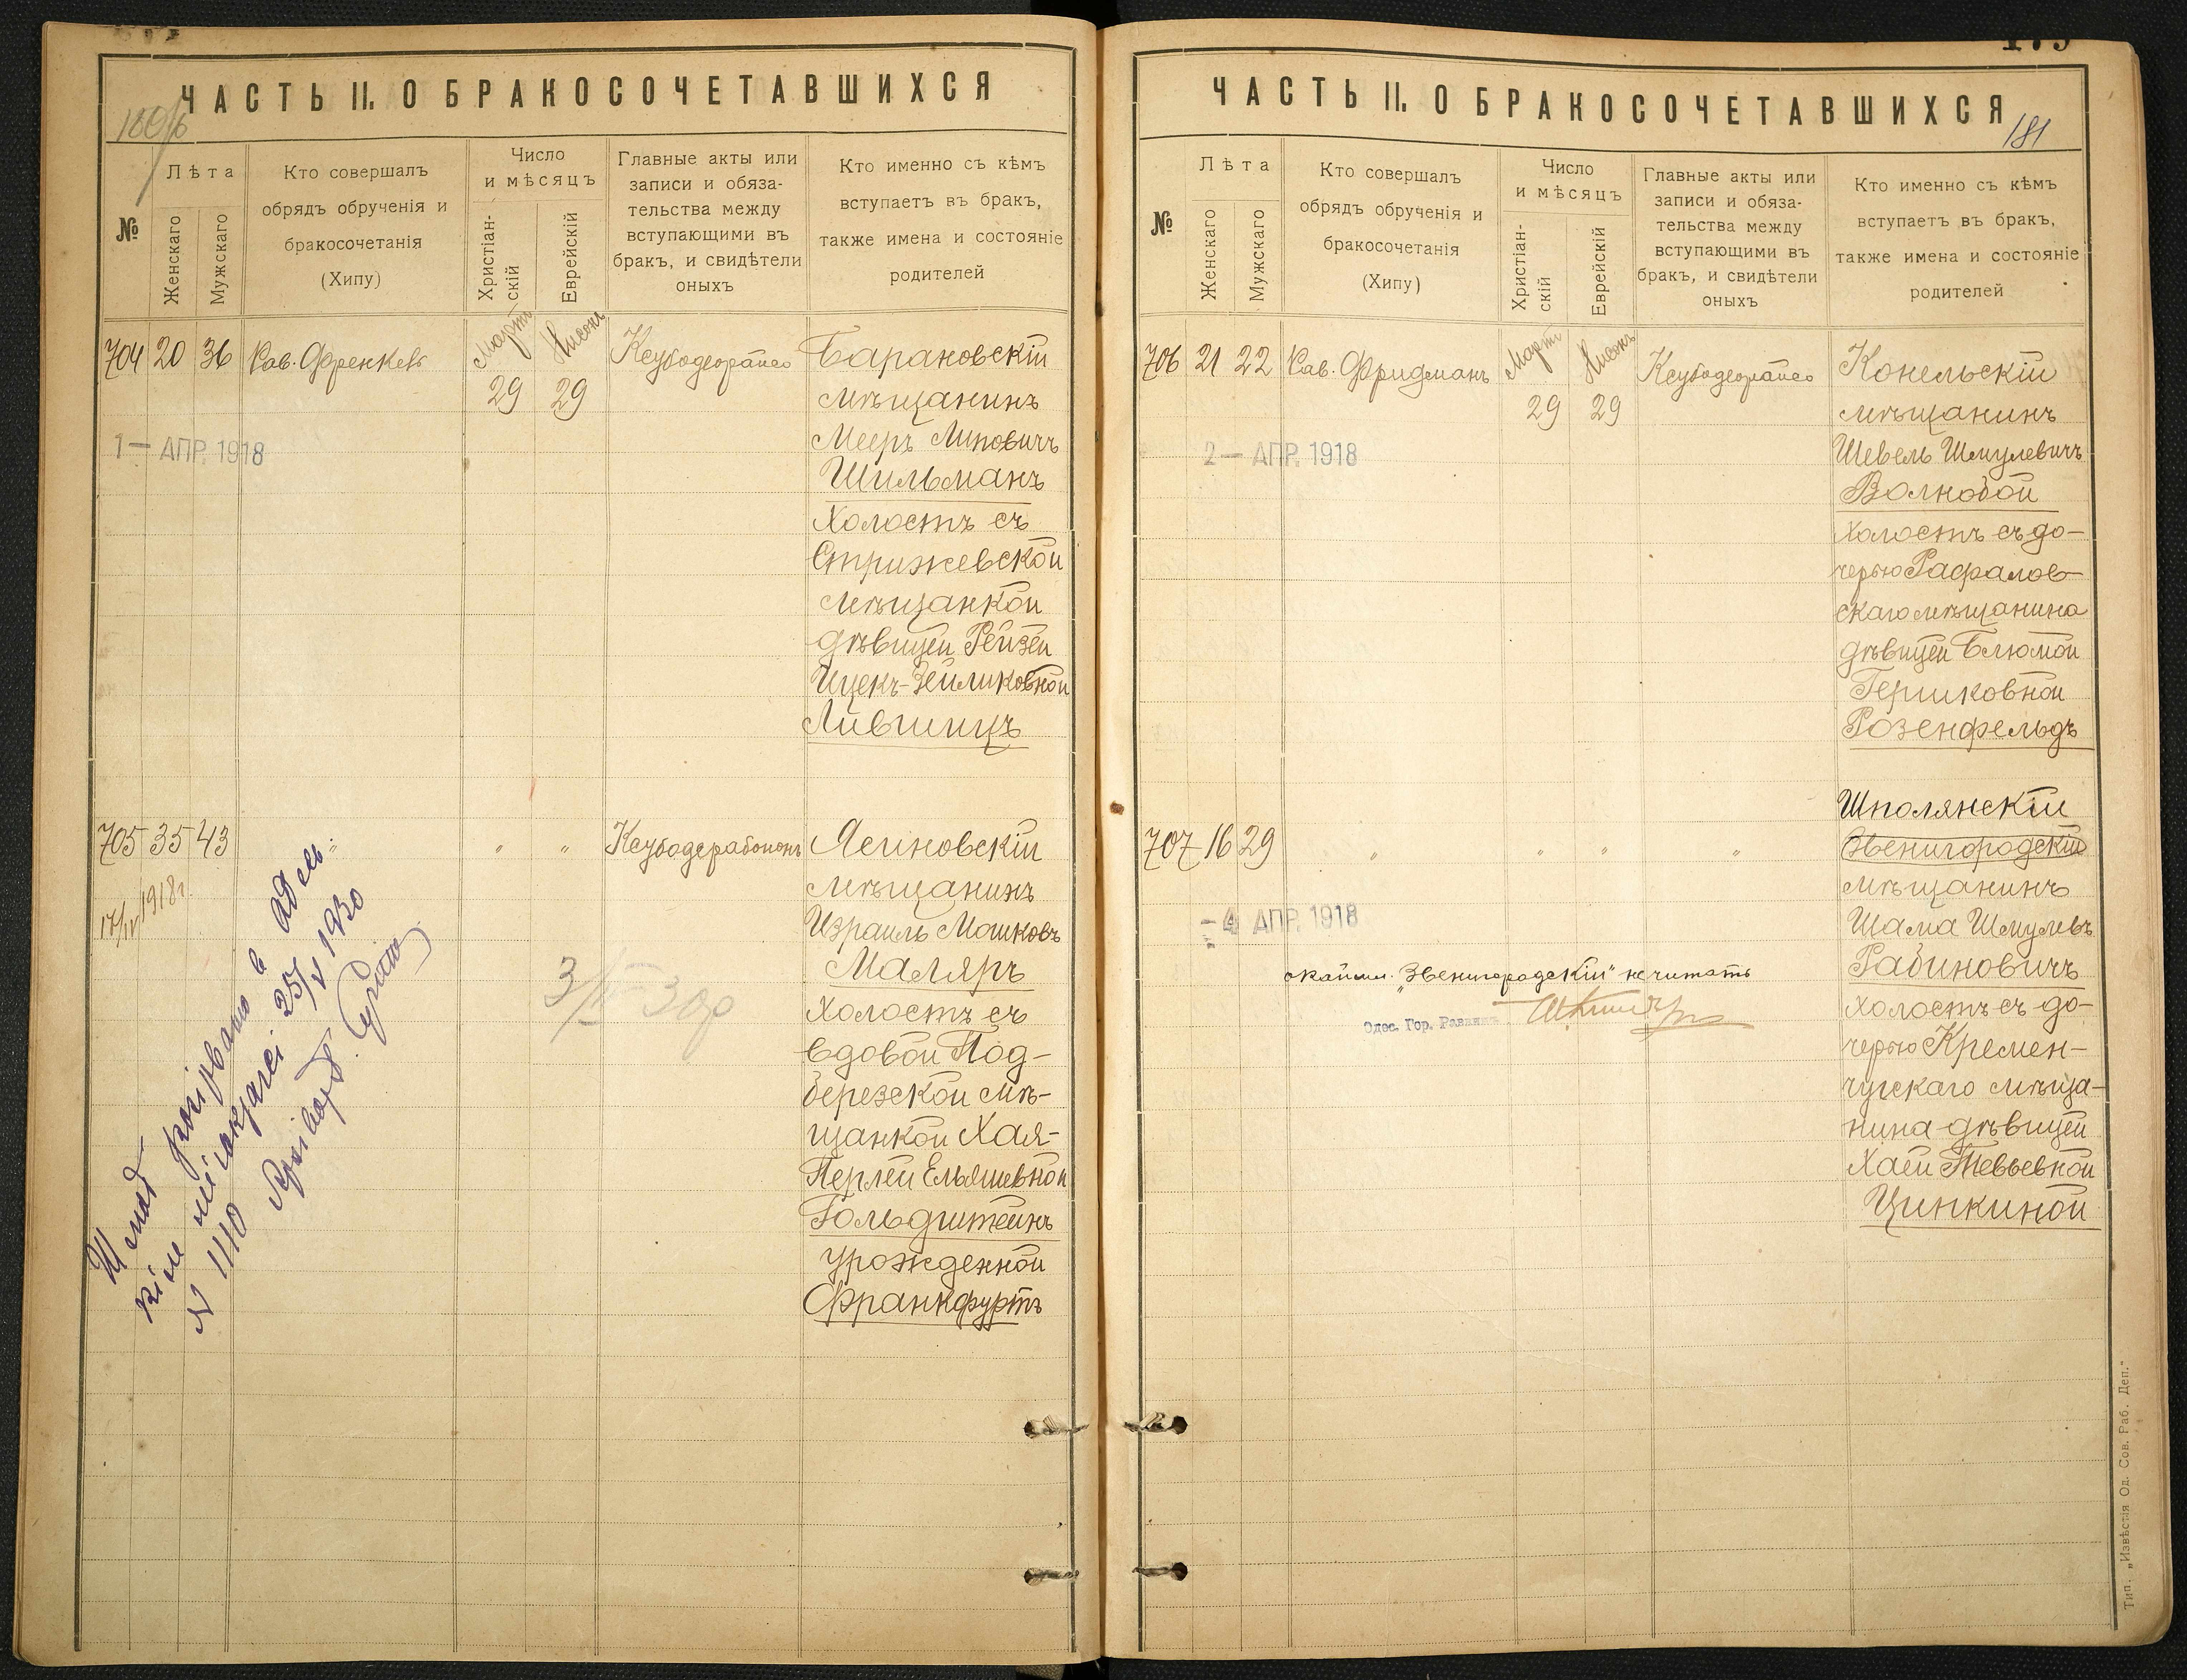 ЧАСТЬ II. О БРАКОСОЧЕТАВШИХСЯ
№
Лѣта
Женскаго
Мужскаго
Кто совершалъ
обрядъ обрученія и
бракосочетанія
(Хипу)
Число
и мѣсяцъ
Христіан-
скій
Еврейскій
Главные акты или
записи и обяза-
тельства между
вступающими въ
бракъ, и свидѣтели
оныхъ
Кто именно съ кѣмъ
вступаетъ въ бракъ,
также имена и состояніе
родителей
704 20 36 Рав. Френкель
Мартъ Нисонъ
29 29
Ксубодеорайсо
1 — АПР. 1918
Барановскій
мѣщанинъ
Мееръ Липовичъ
Шильманъ
Холостъ съ
Стрижевской
мѣщанкой
дѣвицей Рейзей
Ицекъ-Зейликовной
Лившицъ
705 35 43 " " Ксубодерабононъ
17/IV 1918г.
3/IV 30р
Ясиновскій
мѣщанинъ
Израиль Мошковъ
Маляръ
Холостъ съ
вдовой Под-
березской мѣ-
щанкой Хая-
Перлей Ельяшевной
Гольдштейнъ
урожденной
Франкфуртъ
N 1110
25/V 1930
ЧАСТЬ II. О БРАКОСОЧЕТАВШИХСЯ
181
№
Лѣта
Женскаго
Мужскаго
Кто совершалъ
обрядъ обрученія и
бракосочетанія
(Хипу)
Число
и мѣсяцъ
Христіан-
скій
Еврейскій
Главные акты или
записи и обяза-
тельства между
вступающими въ
бракъ, и свидѣтели
оныхъ
Кто именно съ кѣмъ
вступаетъ въ бракъ,
также имена и состояніе
родителей
706 21 22 Рав. Фридманъ
Мартъ Нисонъ
29 29
Ксубодеорайсо
2 — АПР. 1918
Конельскій
мѣщанинъ
Шевель Шмулевичъ
Волновой
Холостъ съ до-
черью Рафалов-
скаго мѣщанина
дѣвицей Блюмой
Гершковной
Розенфельдъ
707 16 29 " " " "
- 4 АПР. 1918
Шполянскій
Звенигородскій
мѣщанинъ
Шама Шмулевъ
Рабиновичъ
Холостъ съ до-
черью Кремен-
чугскаго мѣща-
нина дѣвицей
Хаей Тевьевной
Цинкиной
окайми. "Звенигородскій" не читать
Одес. Гор. Раввинъ
Тип. „Извѣстія Од. Сов. Раб. Деп."